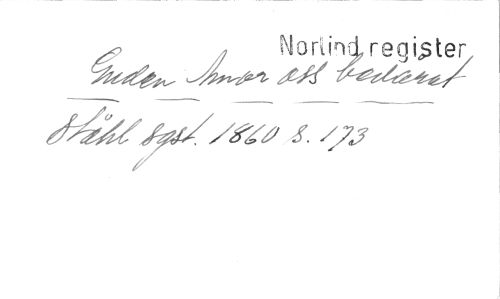 Norlind register
Guden Amor oss bedårat
Ståhl sgst. 1860 s. 173